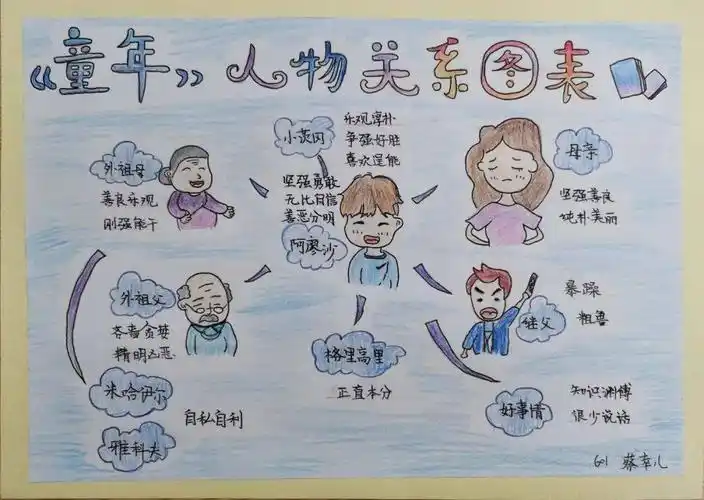 《童年》人物关系图表
小茨冈
乐观淳朴
争强好胜
喜欢逞能
外祖母
善良乐观
刚强能干
坚强勇敢
无比自信
善恶分明
阿廖沙
母亲
坚强善良
纯朴美丽
外祖父
吝啬贪婪
精明凶恶
继父
暴躁
粗鲁
格里高里
正直本分
米哈伊尔
雅科夫
自私自利
好事情
知识渊博
很少说话
601 蔡幸儿